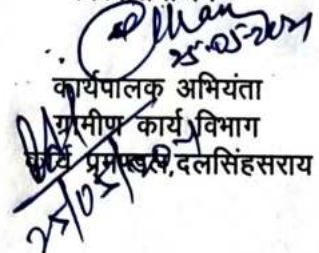 25-05-2021
कार्यपालक अभियंता
ग्रामीण कार्य विभाग
कार्य प्रमण्डल, दलसिंहसराय